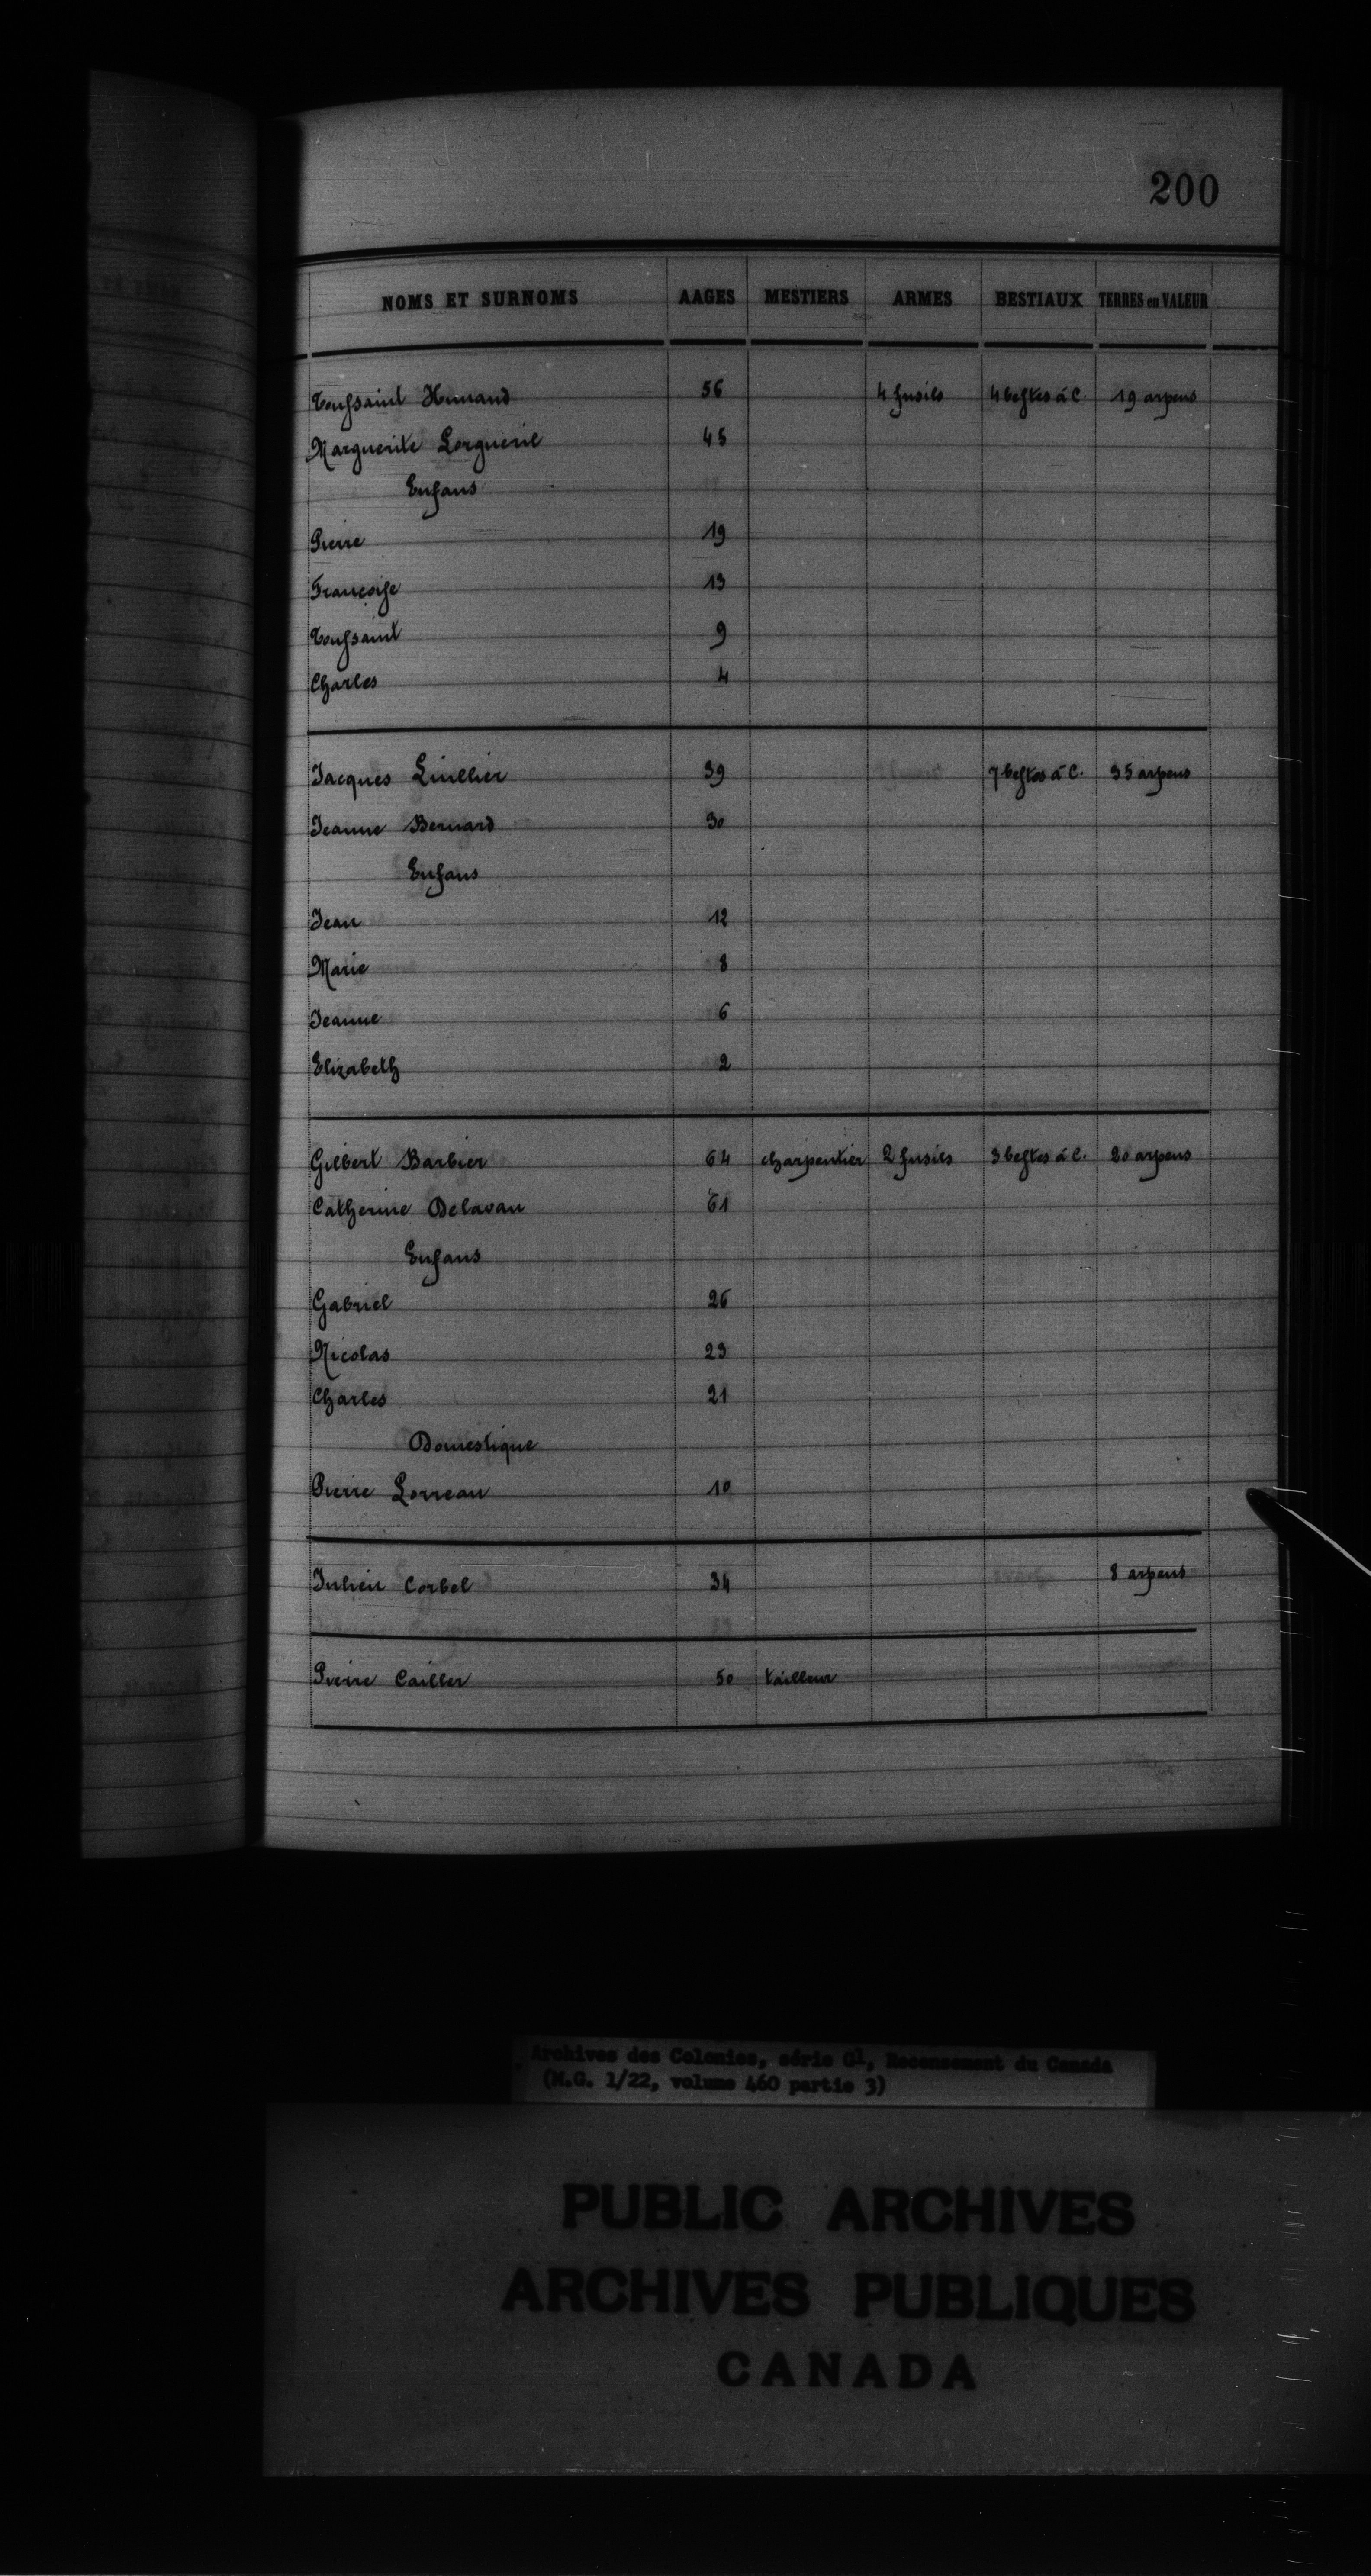 200
NOMS ET SURNOMS AAGES MESTIERS ARMES BESTIAUX TERRES en VALEUR
Toussaint Hunaud 56 4 fusils 4 bestes à C. 19 arpens
Marguerite Lorguerie 45
Enfans
Pierre 19
Françoise 13
Toussaint 9
Charles 4
Jacques Liullier 39 7 bestes à C. 35 arpens
Jeanne Bernard 30
Enfans
Jean 12
Marie 8
Jeanne 6
Elizabeth 2
Gilbert Barbier 64 charpentier 2 fusils 3 bestes à C. 20 arpens
Catherine Delavau 61
Enfans
Gabriel 26
Nicolas 23
Charles 21
Domestique
Pierre Lorreau 10
Julien Corbel 34 8 arpens
Pierre Cailler 50 tailleur
Archives des Colonies, série G1, Recensement du Canada
(M.G. 1/22, volume 460 partie 3)
PUBLIC ARCHIVES
ARCHIVES PUBLIQUES
CANADA